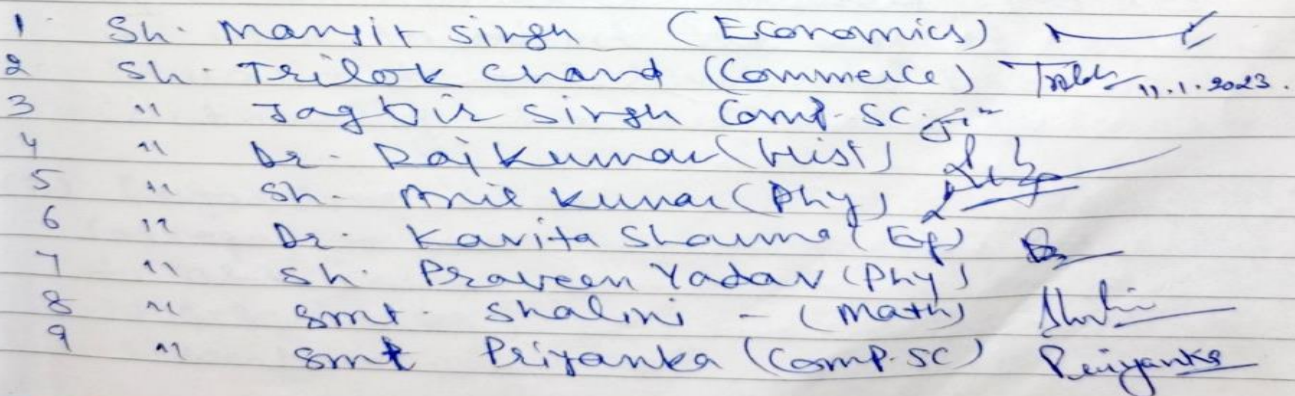 1 Sh. Manjit Singh (Economics)
2 Sh. Trilok Chand (Commerce) Trilok 11.1.2023.
3 " Jagbir Singh Comp. SC.
4 " Dr. Raj Kumar (Hist)
5 " Sh. Anil Kumar (Phy)
6 " Dr. Kavita Sharma
7 " Sh. Praveen Yadav (Phy)
8 " Smt. Shalini - (Math) Shalini
9 " Smt Priyanka (Comp. SC) Priyanka